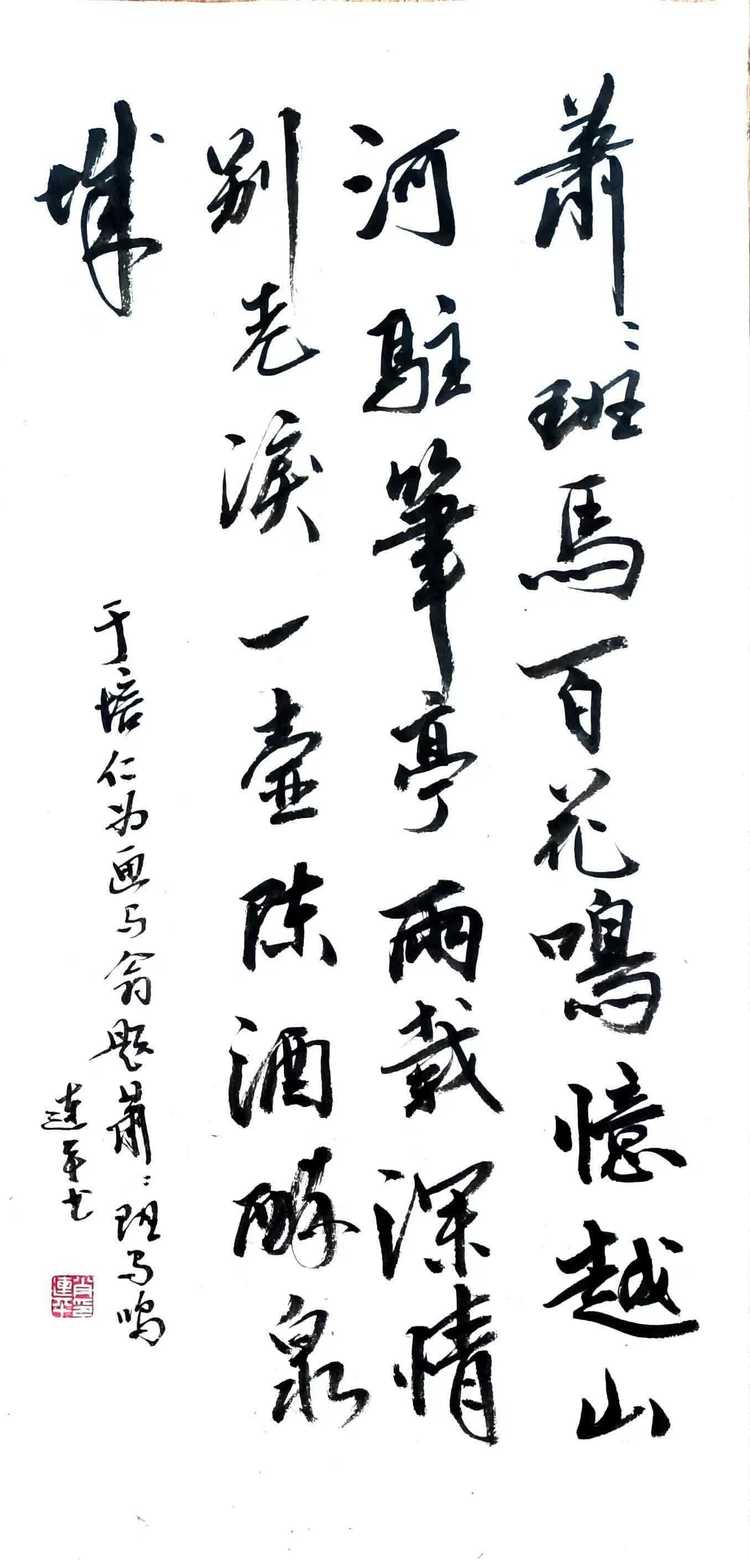 蕭〻班馬百花鳴憶越山
河駐筆亭兩載深情
别老淚一壺陈酒醉泉
城
于培仁为画马翁题蕭〻班马鸣
连平书
連平